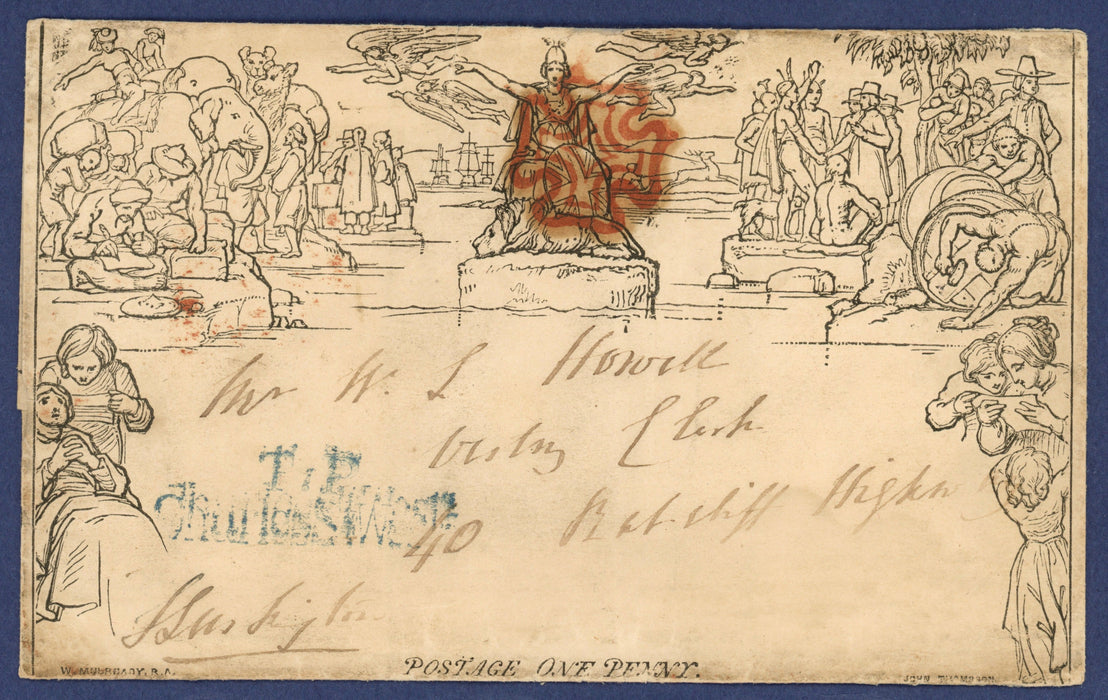 Mr W. L Howell
Vestry Clerk
40 Ratcliff Highw
T.P
Charles St West
W. MULREADY. R.A.
POSTAGE ONE PENNY.
JOHN THOMPSON